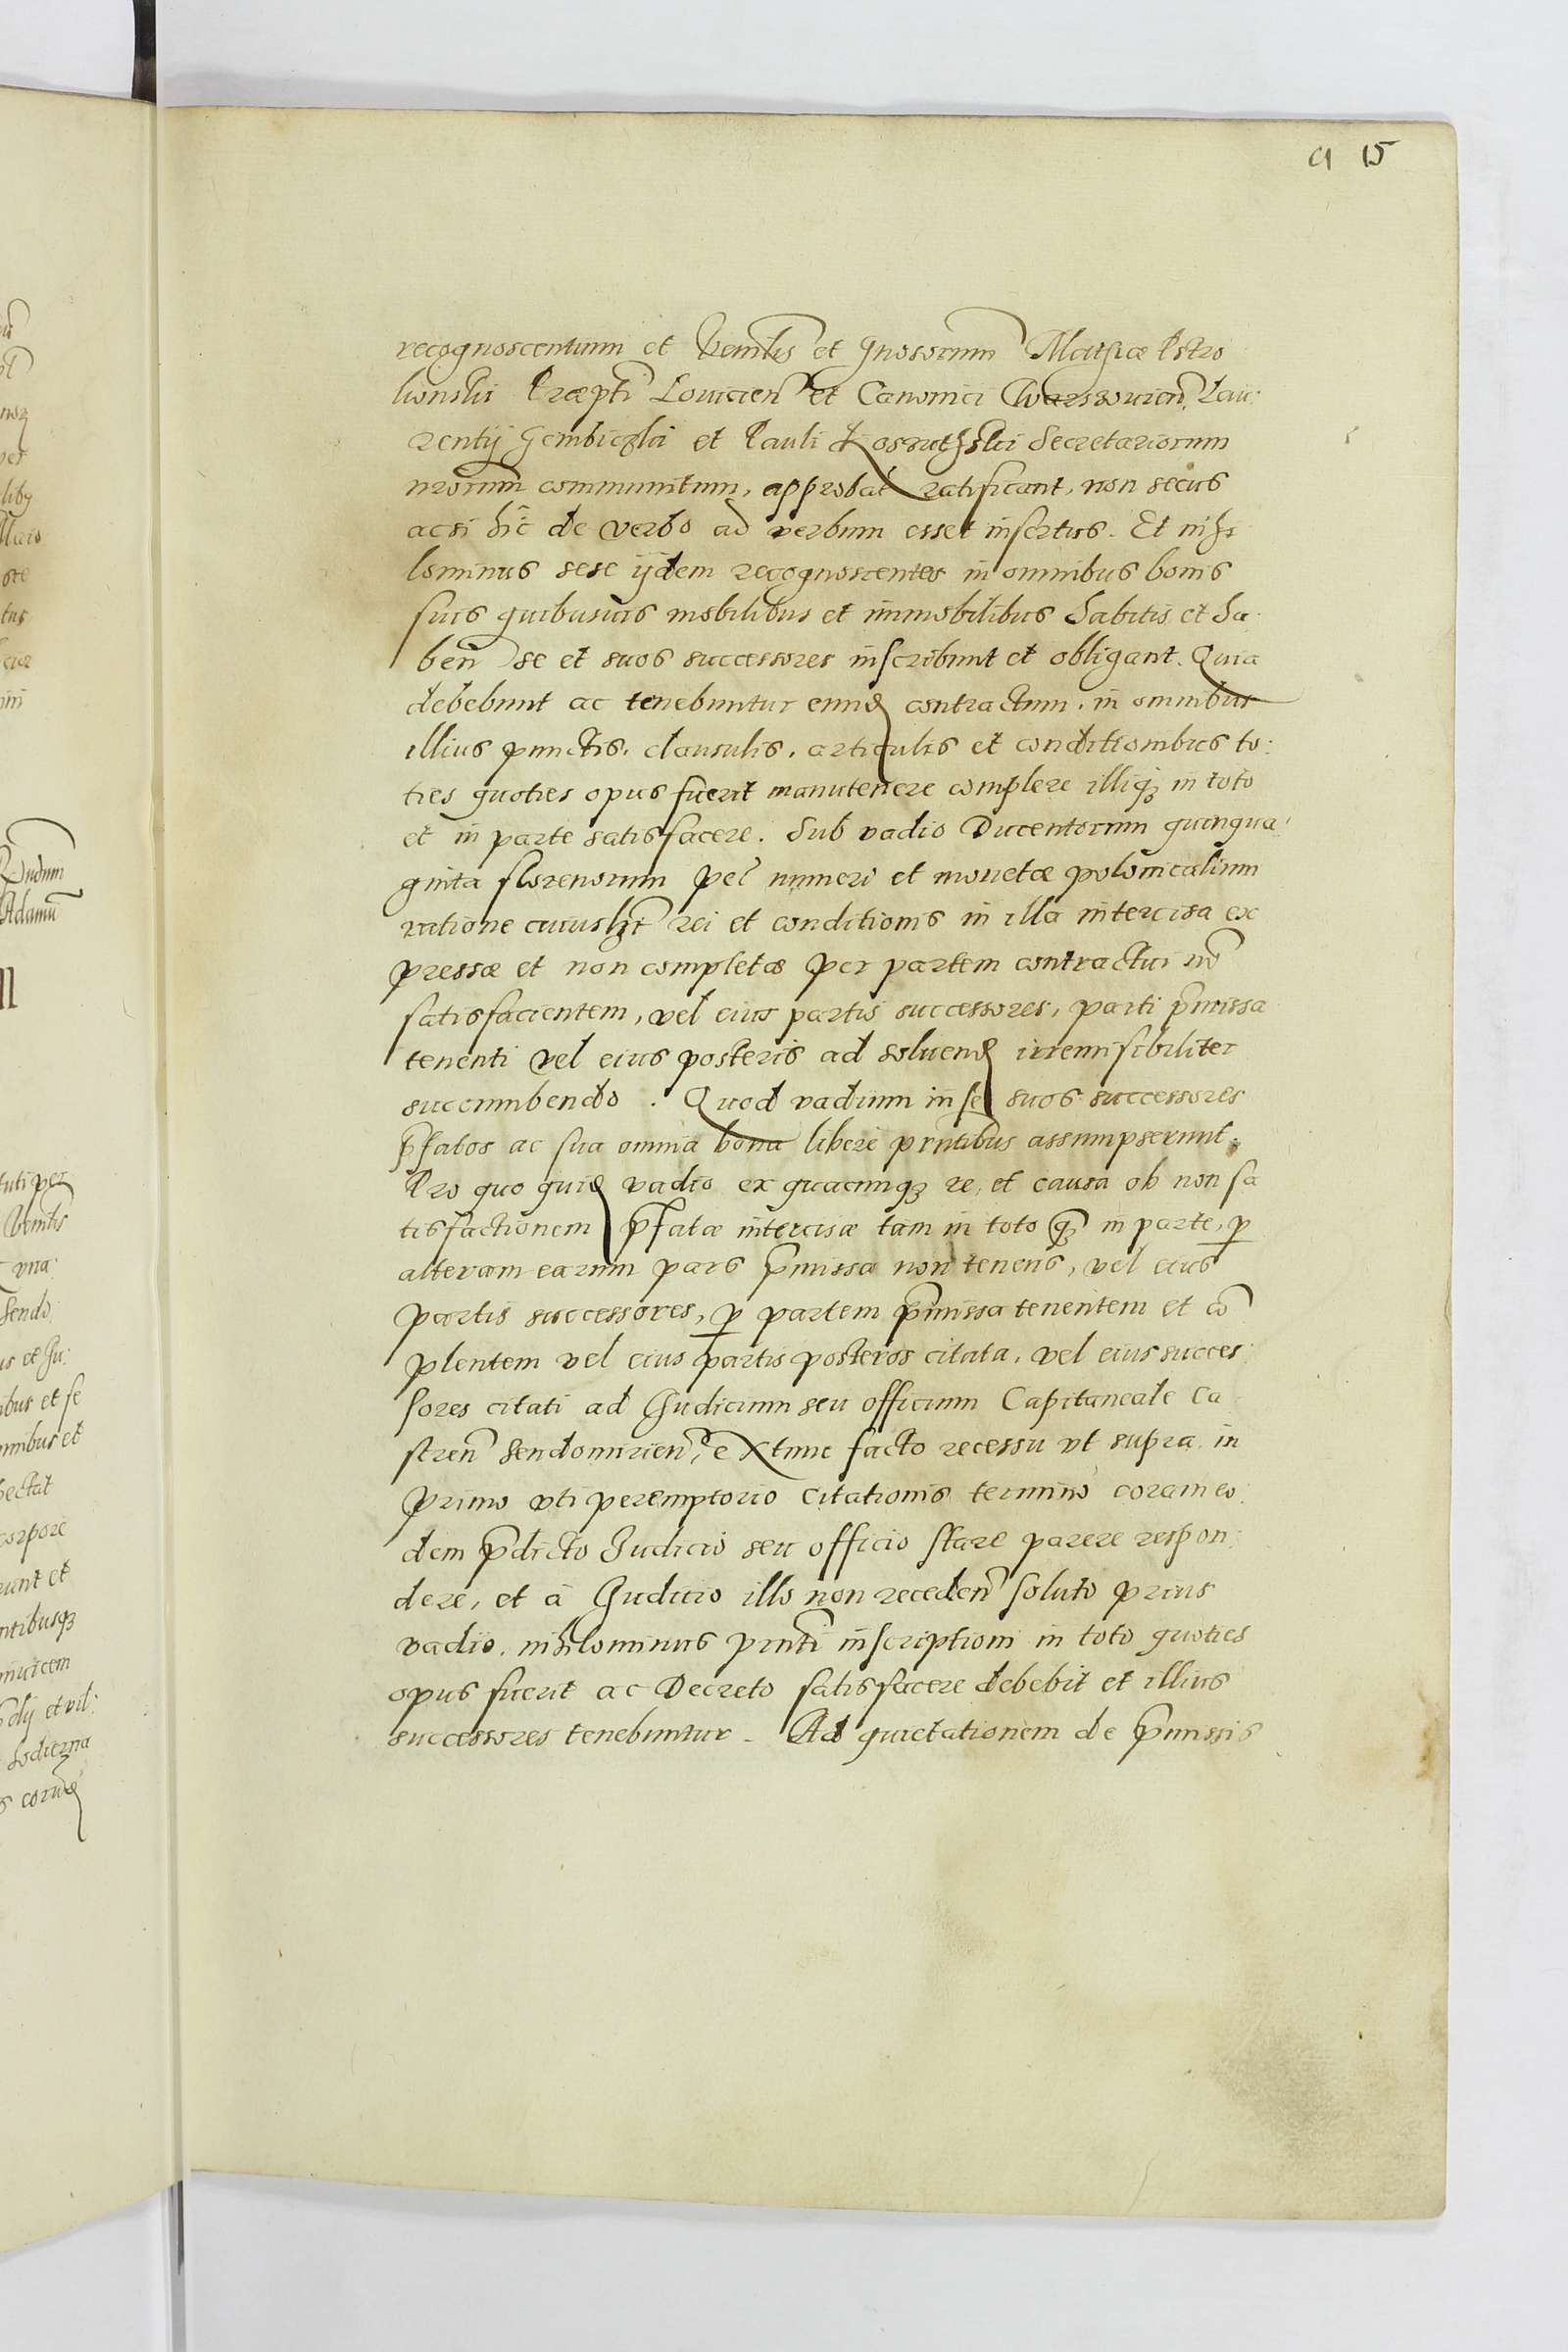 a 15
recognoscentium et Venlis et Gnosorum Mathiæ Pstro
lionskij Præpti Lovicien̄ et Canonici Warssovien̄, Lau:
rentij Gembiczki et Pauli Kosnrthski Secretariorum
nrorum communitum, approbat ratificant, non secus
acsi hic de verbo ad verbum esset insertus. Et nihi
lominus sese ijdem recognoscentes in omnibus bonis
suis quibusuis mobilibus et immobilibus habitis et ha
ben̄ se et suos successores inscribunt et obligant. Quia
debebunt ac tenebuntur eund contractum, in omnibus
illius punctis, clausulis, articulis et conditionibus to:
ties quoties opus fuerit manutenere complere illiqꝫ in toto
et in parte satisfacere. Sub vadio Ducentorum quinqua
ginta florenorum pel numeri et monetæ polonicalium
ratione cuiuslꝫt rei et conditionis in illa intercisa ex
pressæ et non completæ per partem contractui nō
satisfacientem, vel eius partis successores, parti p̄missa
tenenti vel eius posteris ad soluend irremisibiliter
succumbendo. Quod vadium in se suos successores
p̄fatos ac sua omnia bona liberè pn̄tibus assumpserunt.
Pro quo quid vadio ex quacunqꝫ re, et causa ob non sa
tisfactionem p̄fatæ intercisæ tam in toto qꝫ in parte, ꝑ
alteram earum pars p̄missa non tenens, vel eius
partis successores, ꝑ partem p̄missa tenentem et cō
plentem vel eius partis posteros citata, vel eius succes
sores citati ad Judicium seu officium Capitaneale Ca
stren̄ Sendomirien̄, extunc facto recessu vt supra in
primo vti peremptorio citationis termino coram eo:
dem p̄dicto Judicio seu officio stare parere respon:
dere, et à Judicio illo non receden̄ soluto prius
vadio, nihilominus pn̄ti inscriptioni in toto quoties
opus fuerit ac Decreto satisfacere debebit et illius
successores tenebuntur. Ad quietationem de p̄missis